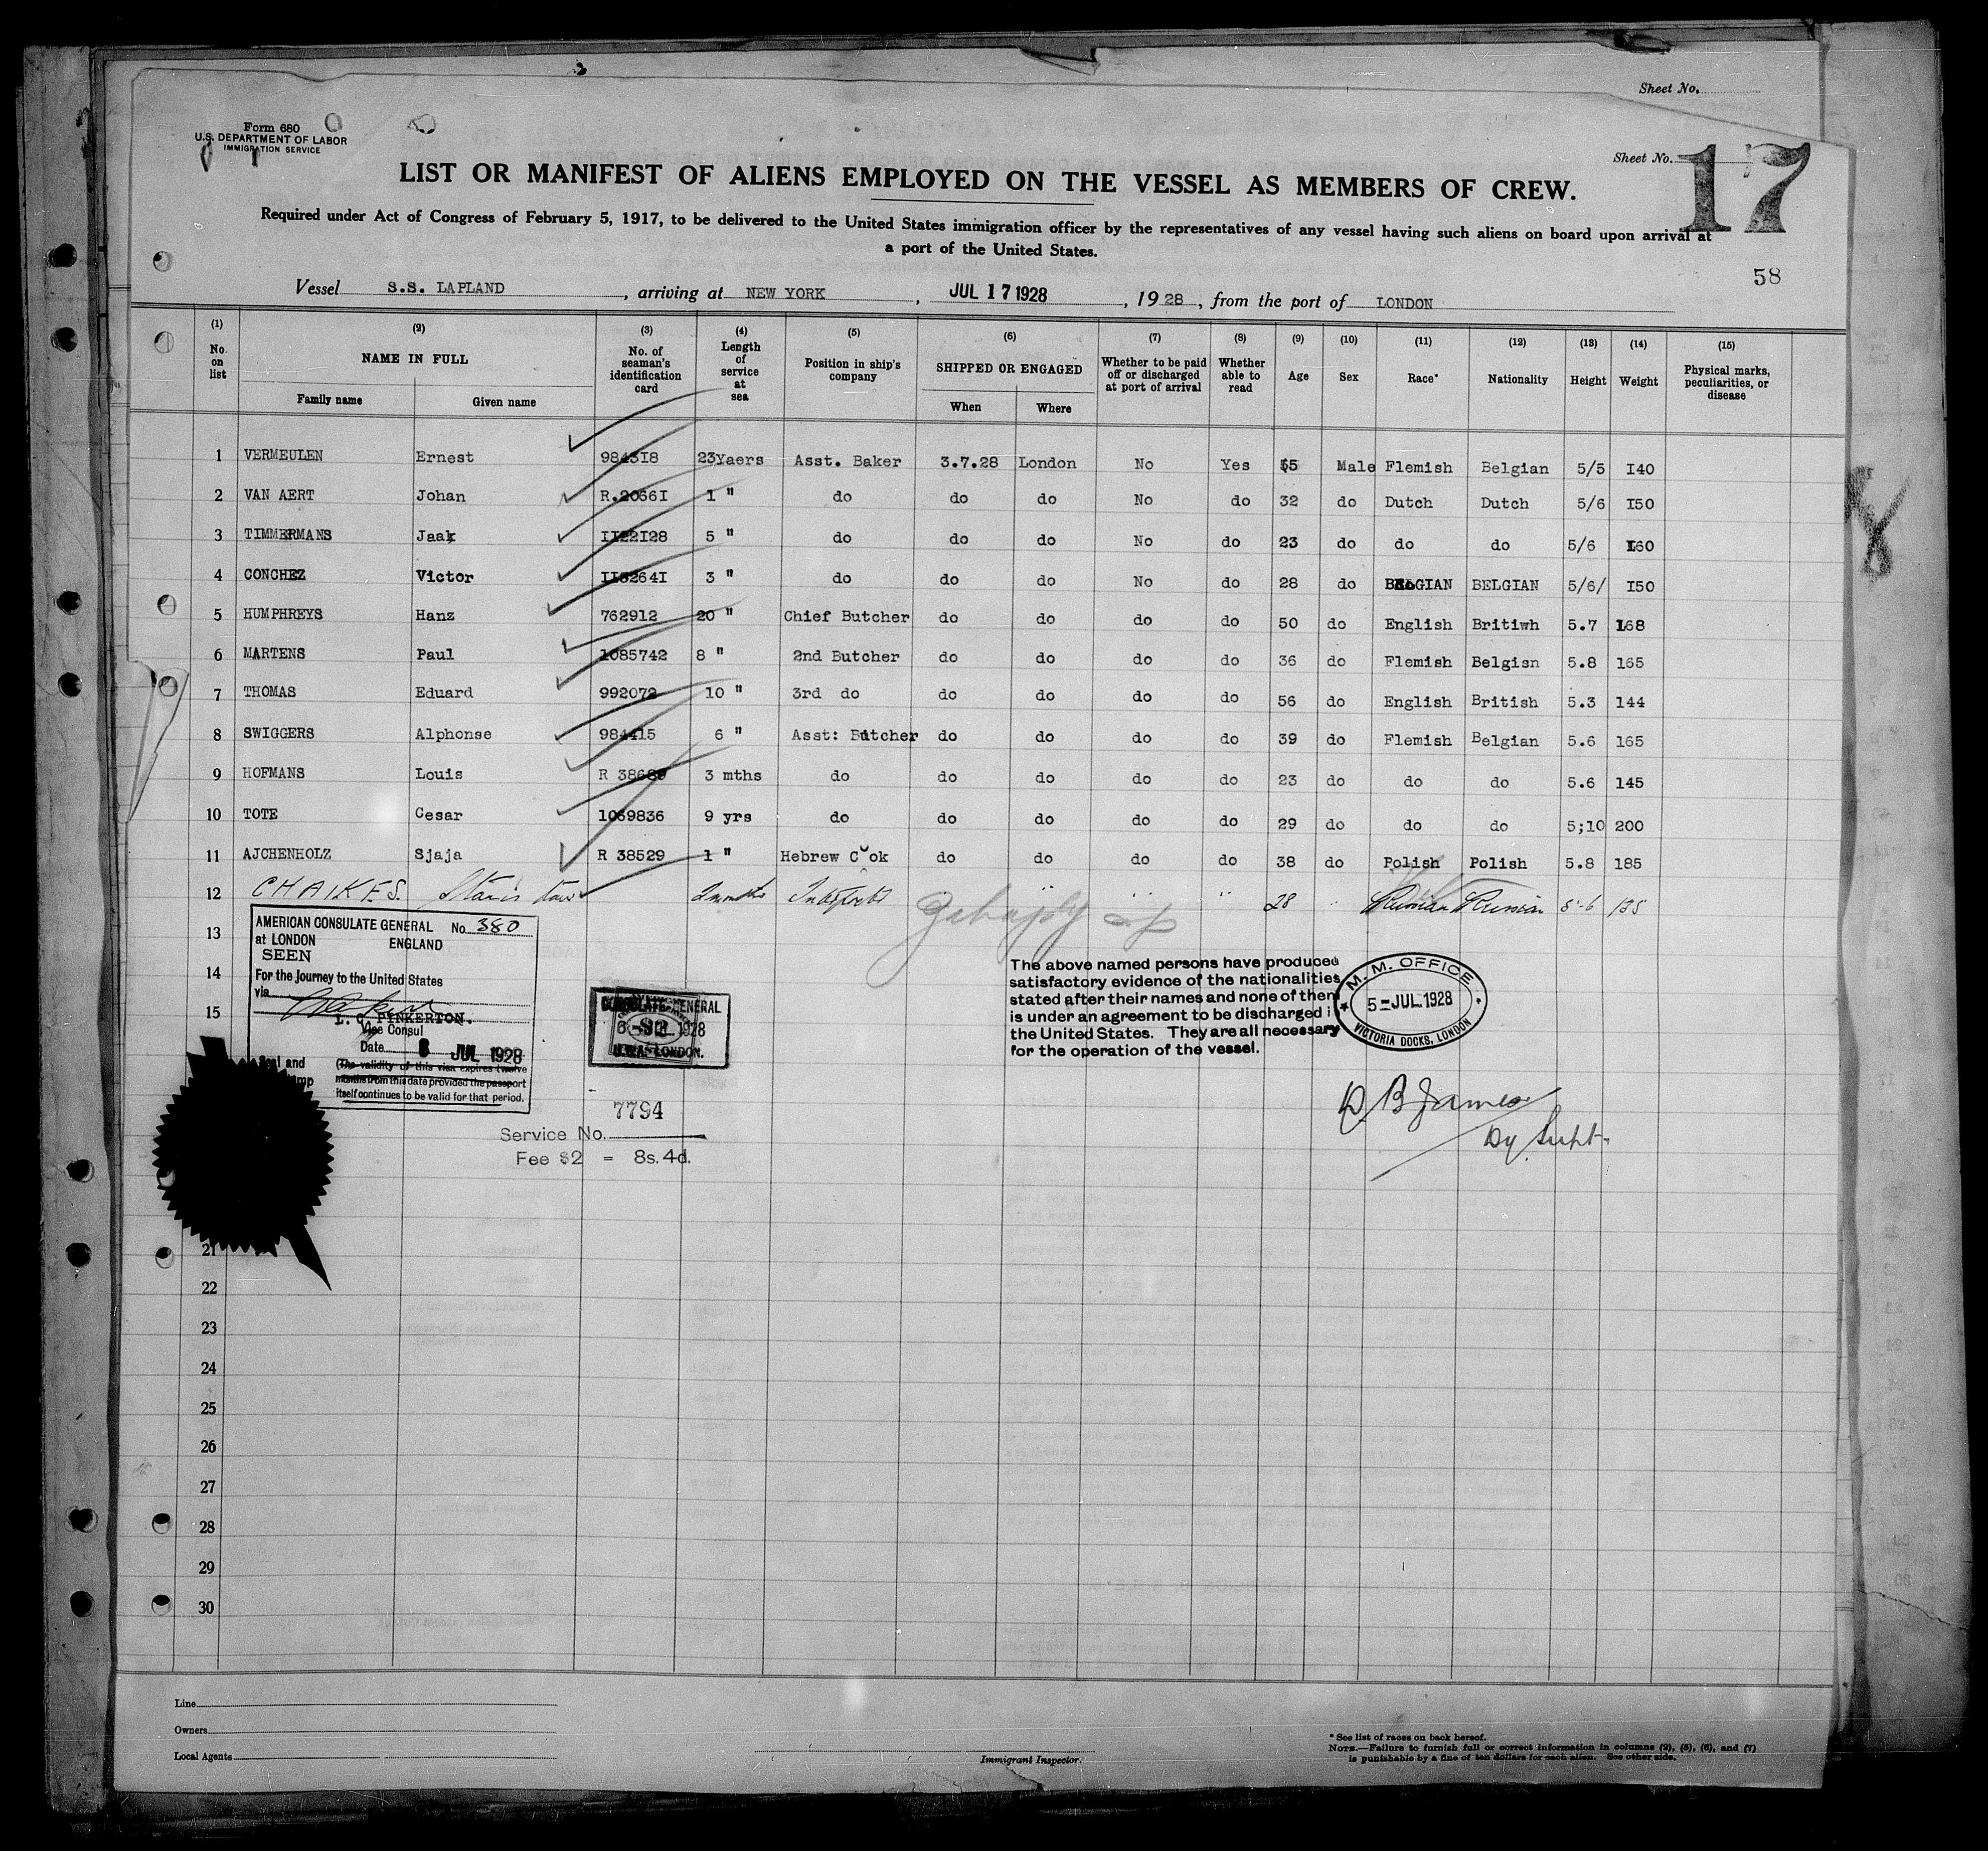 Sheet No.
Form 680
U.S. DEPARTMENT OF LABOR
IMMIGRATION SERVICE
Sheet No. 17
LIST OR MANIFEST OF ALIENS EMPLOYED ON THE VESSEL AS MEMBERS OF CREW.
Required under Act of Congress of February 5, 1917, to be delivered to the United States immigration officer by the representatives of any vessel having such aliens on board upon arrival at
a port of the United States.
58
Vessel S.S. LAPLAND, arriving at NEW YORK, JUL 17 1928, 1928, from the port of LONDON
(1) (2) (3) (4) (5) (6) (7) (8) (9) (10) (11) (12) (13) (14) (15)
No. on list NAME IN FULL Family name Given name No. of seaman's identification card Length of service at sea Position in ship's company SHIPPED OR ENGAGED When Where Whether to be paid off or discharged at port of arrival Whether able to read Age Sex Race* Nationality Height Weight Physical marks, peculiarities, or disease
1 VERMEULEN Ernest 984318 23Yaers Asst. Baker 3.7.28 London No Yes Male Flemish Belgian 5/5 I40
2 VAN AERT Johan R.2066I 1 " do do do No do 32 do Dutch Dutch 5/6 I50
3 TIMMERMANS Jaak II22I28 5 " do do do No do 23 do do do 5/6 I60
4 CONCHEZ Victor 3 " do do do No do 28 do BELGIAN BELGIAN 5/6/ I50
5 HUMPHREYS Hanz 762912 20 " Chief Butcher do do do do 50 do English Britiwh 5.7 168
6 MARTENS Paul 1085742 8 " 2nd Butcher do do do do 36 do Flemish Belgisn 5.8 165
7 THOMAS Eduard 992072 10 " 3rd do do do do do 56 do English British 5.3 144
8 SWIGGERS Alphonse 984415 6 " Asst: Butcher do do do do 39 do Flemish Belgian 5.6 165
9 HOFMANS Louis R 38689 3 mths do do do do do 23 do do do 5.6 145
10 TOTE Cesar 1069836 9 yrs do do do do do 29 do do do 5;10 200
11 AJCHENHOLZ Sjaja R 38529 1 " Hebrew Cook do do do do 38 do Polish Polish 5.8 185
12 CHAIKES. 2 months " " " 28 " Russian Russian 5-6 135
13
14
15
AMERICAN CONSULATE GENERAL No. 380
at LONDON ENGLAND
SEEN
For the journey to the United States
via
L. C. PINKERTON.
Vice Consul
Date 6 JUL 1928
Seal and
(The validity of this visa expires twelve
months from this date provided the passport
itself continues to be valid for that period.
CONSULATE GENERAL
6-JUL 1928
U.S.A. LONDON.
The above named persons have produced
satisfactory evidence of the nationalities
stated after their names and none of them
is under an agreement to be discharged i
the United States. They are all necessary
for the operation of the vessel.
M. M. OFFICE
5-JUL.1928
VICTORIA DOCKS, LONDON
D B James
Dy Supt.
7794
Service No.
Fee $2 = 8s. 4d.
21
22
23
24
25
26
27
28
29
30
Line
Owners
Local Agents
Immigrant Inspector.
* See list of races on back hereof.
NOTE.—Failure to furnish full or correct information in columns (2), (5), (6), and (7)
is punishable by a fine of ten dollars for each alien. See other side.